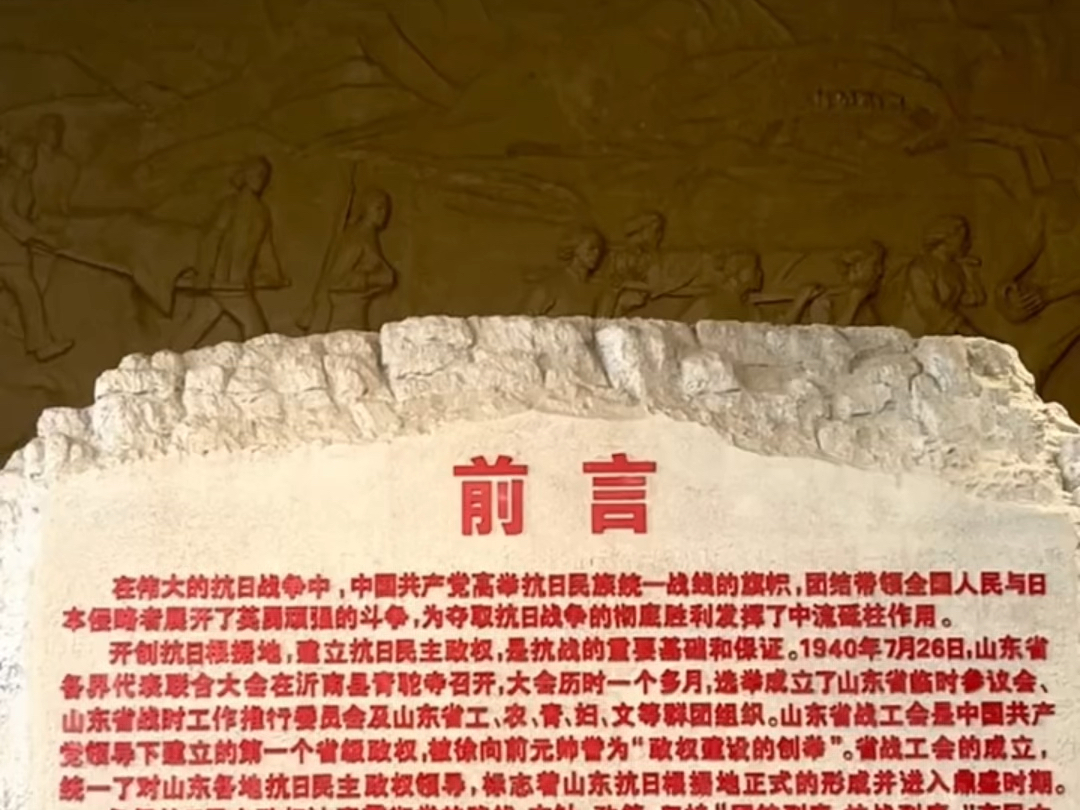 前言
在伟大的抗日战争中,中国共产党高举抗日民族统一战线的旗帜,团结带领全国人民与日
本侵略者展开了英勇顽强的斗争,为夺取抗日战争的彻底胜利发挥了中流砥柱作用。
开创抗日根据地,建立抗日民主政权,是抗战的重要基础和保证。1940年7月26日,山东省
各界代表联合大会在沂南县青驼寺召开,大会历时一个多月,选举成立了山东省临时参议会、
山东省战时工作推行委员会及山东省工、农、青、妇、文等群团组织。山东省战工会是中国共产
党领导下建立的第一个省级政权,被徐向前元帅誉为“政权建设的创举”。省战工会的成立,
统一了对山东各地抗日民主政权领导,标志着山东抗日根据地正式的形成并进入鼎盛时期。